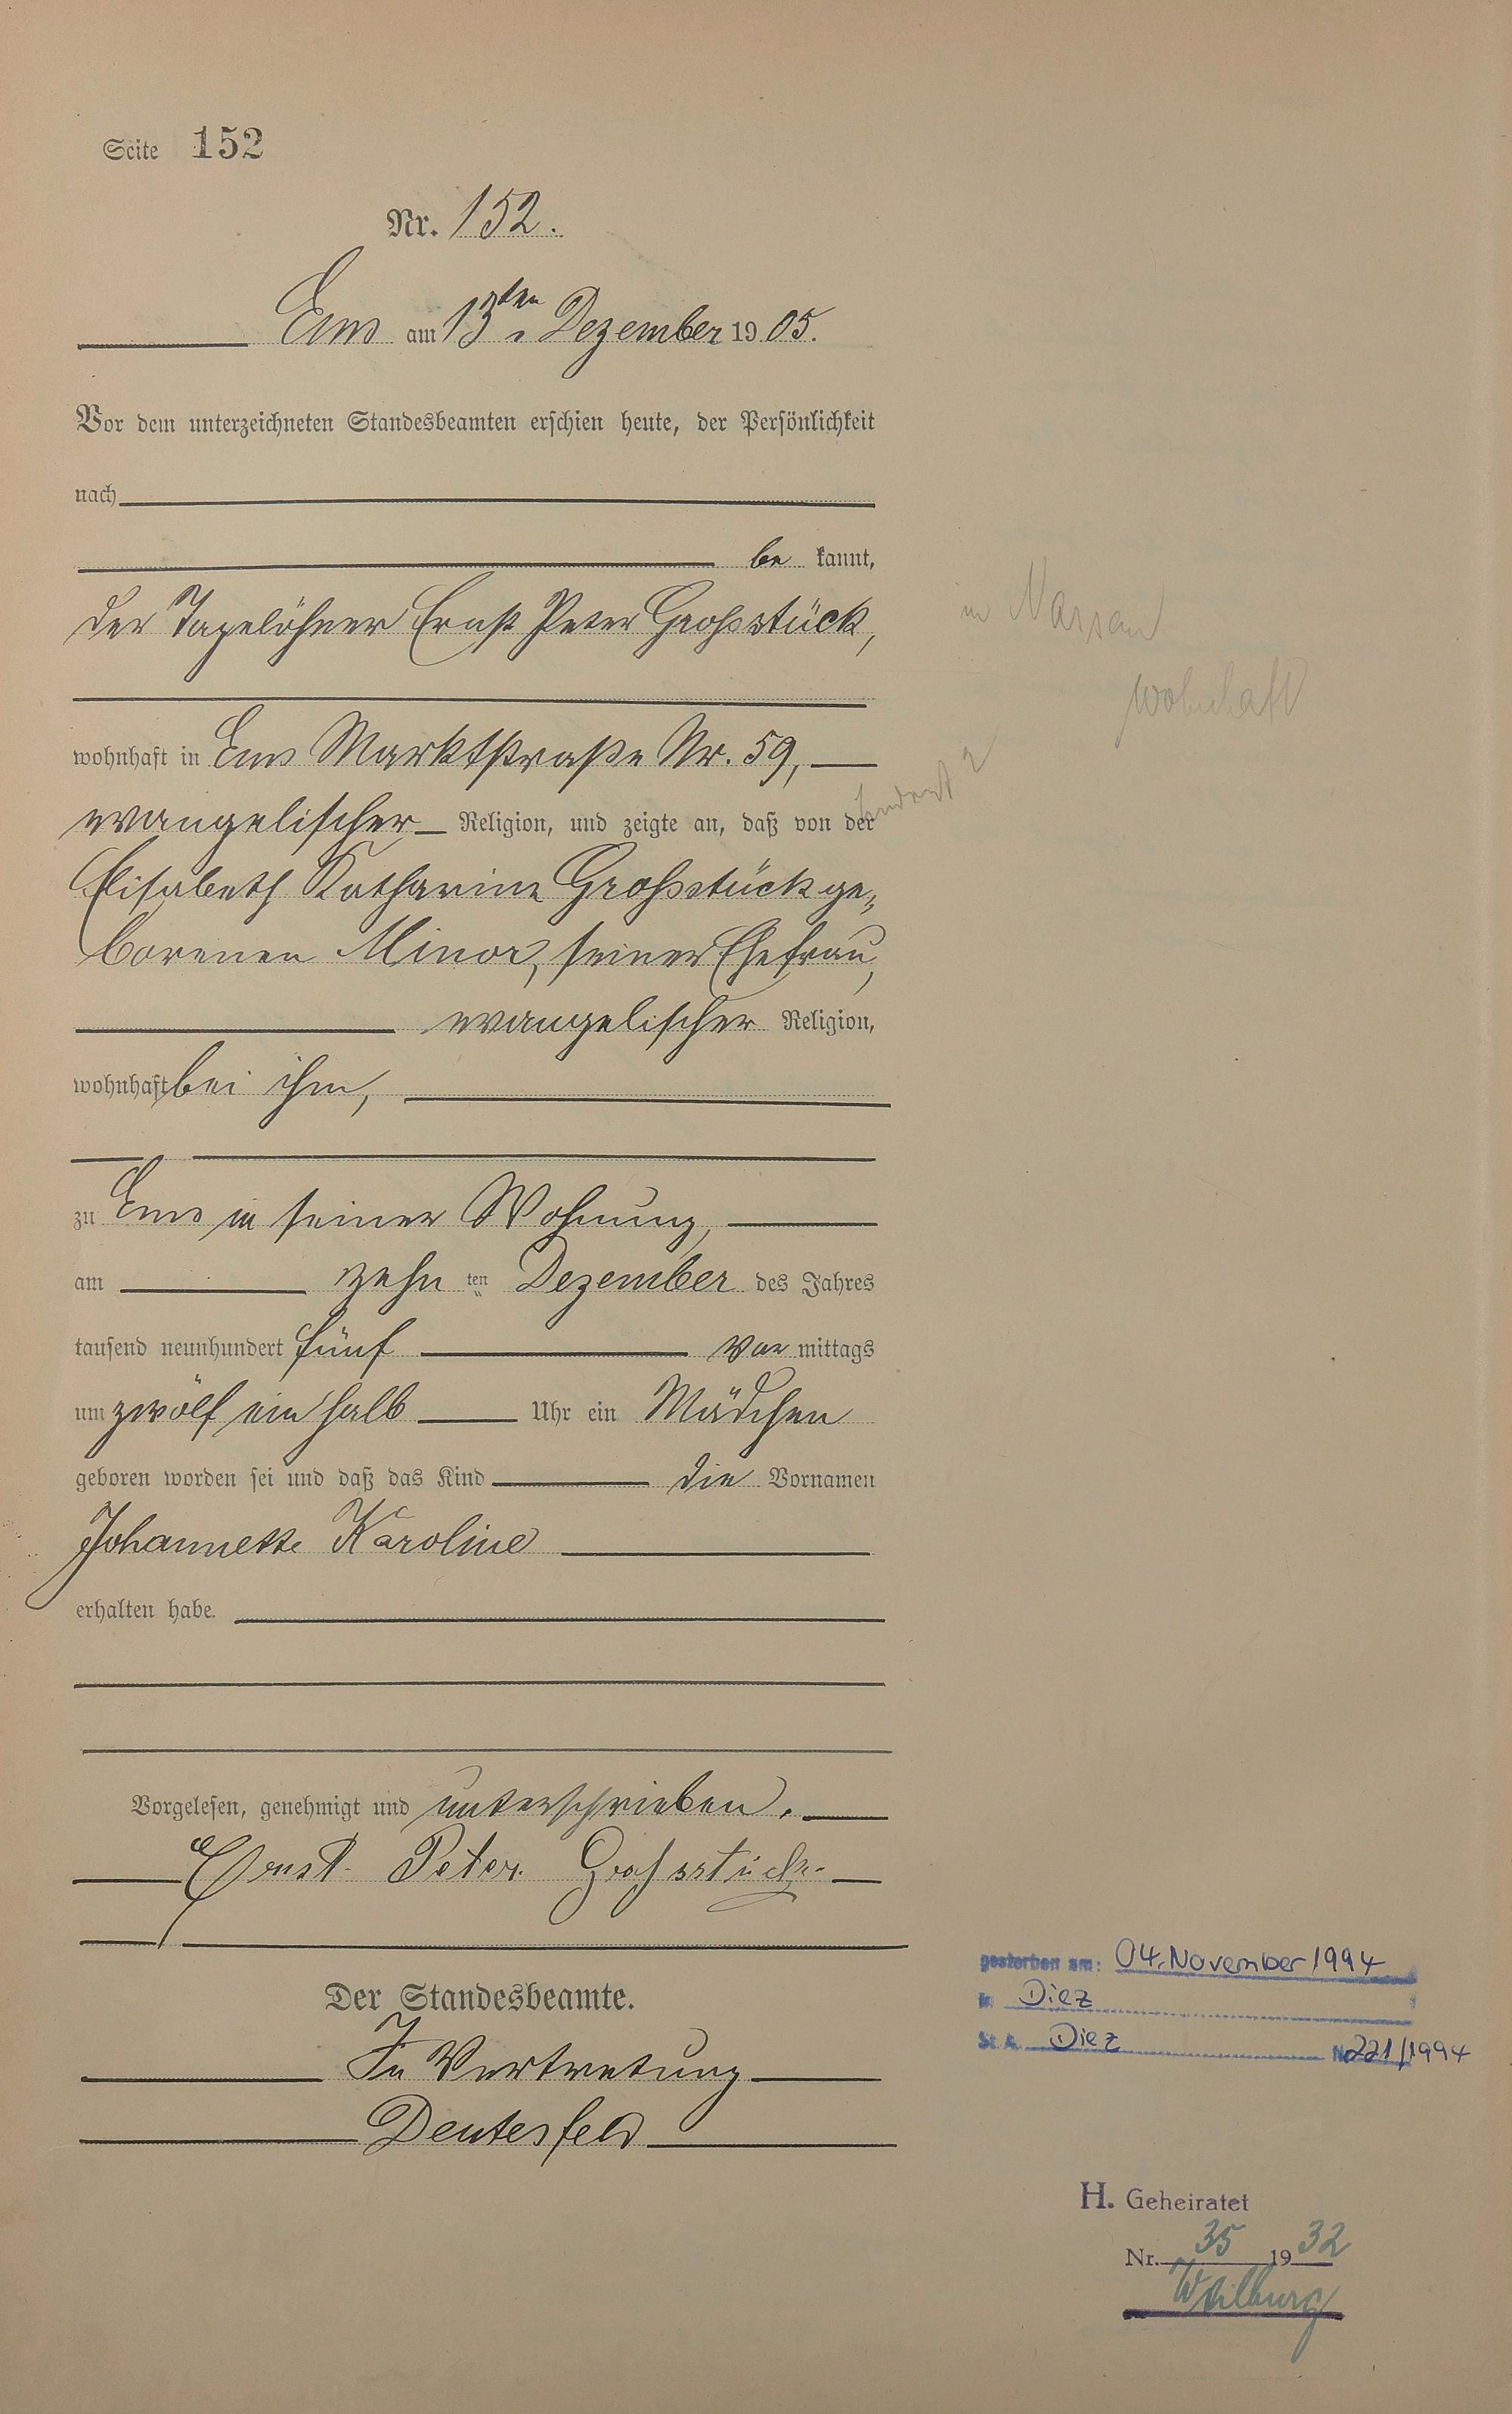 Seite 152
Nr. 152.
Ems am 13ten Dezember 1905.
Vor dem unterzeichneten Standesbeamten erschien heute, der Persönlichkeit
nach
be kannt,
der Tagelöhner Ernst Peter Großstück,
in Nassau
wohnhaft
wohnhaft in Ems Marktstraße Nr. 59,
evangelischer Religion, und zeigte an, daß von der
Elisabeth Katharine Großstück ge-
borenen Minor, seiner Ehefrau,
evangelischer Religion,
wohnhaft bei ihm,
zu Ems in seiner Wohnung,
am zehn ten Dezember des Jahres
tausend neunhundert fünf vor mittags
um zwölf ein halb Uhr ein Mädchen
geboren worden sei und daß das Kind die Vornamen
Johannette Karoline
erhalten habe.
Vorgelesen, genehmigt und unterschrieben.
Ernst Peter Großstück
Der Standesbeamte.
In Vertretung
Deutesfeld
gestorben am: 04. November 1994
in Diez
St. A. Diez Nr. 221/1994
H. Geheiratet
Nr. 35 1932
Weilburg